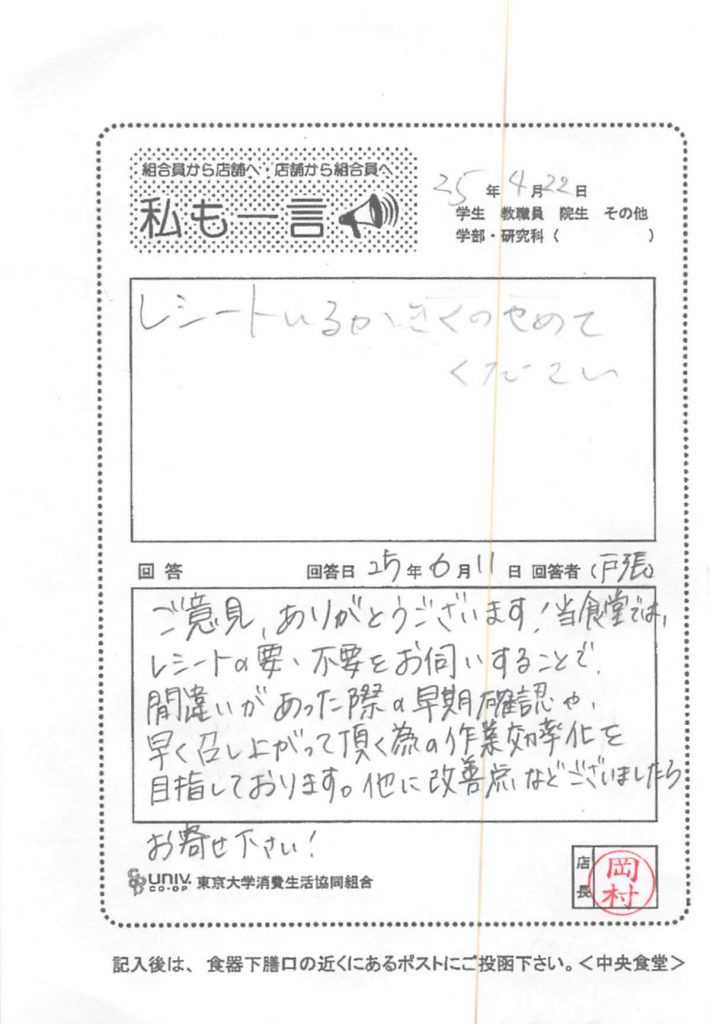 組合員から店舗へ・店舗から組合員へ
私も一言
25年4月22日
学生 教職員 院生 その他
学部・研究科（ ）
レシートいるか、きくのやめて
ください
回答 回答日 25年6月11日 回答者（戸張）
ご意見、ありがとうございます！当食堂では、
レシートの要・不要をお伺いすることで、
間違いがあった際の早期確認や、
早く召し上がって頂く為の作業効率化を
目指しております。他に改善点などございましたら
お寄せ下さい！
UNIV. CO-OP 東京大学消費生活協同組合
店長 岡村
記入後は、食器下膳口の近くにあるポストにご投函下さい。＜中央食堂＞